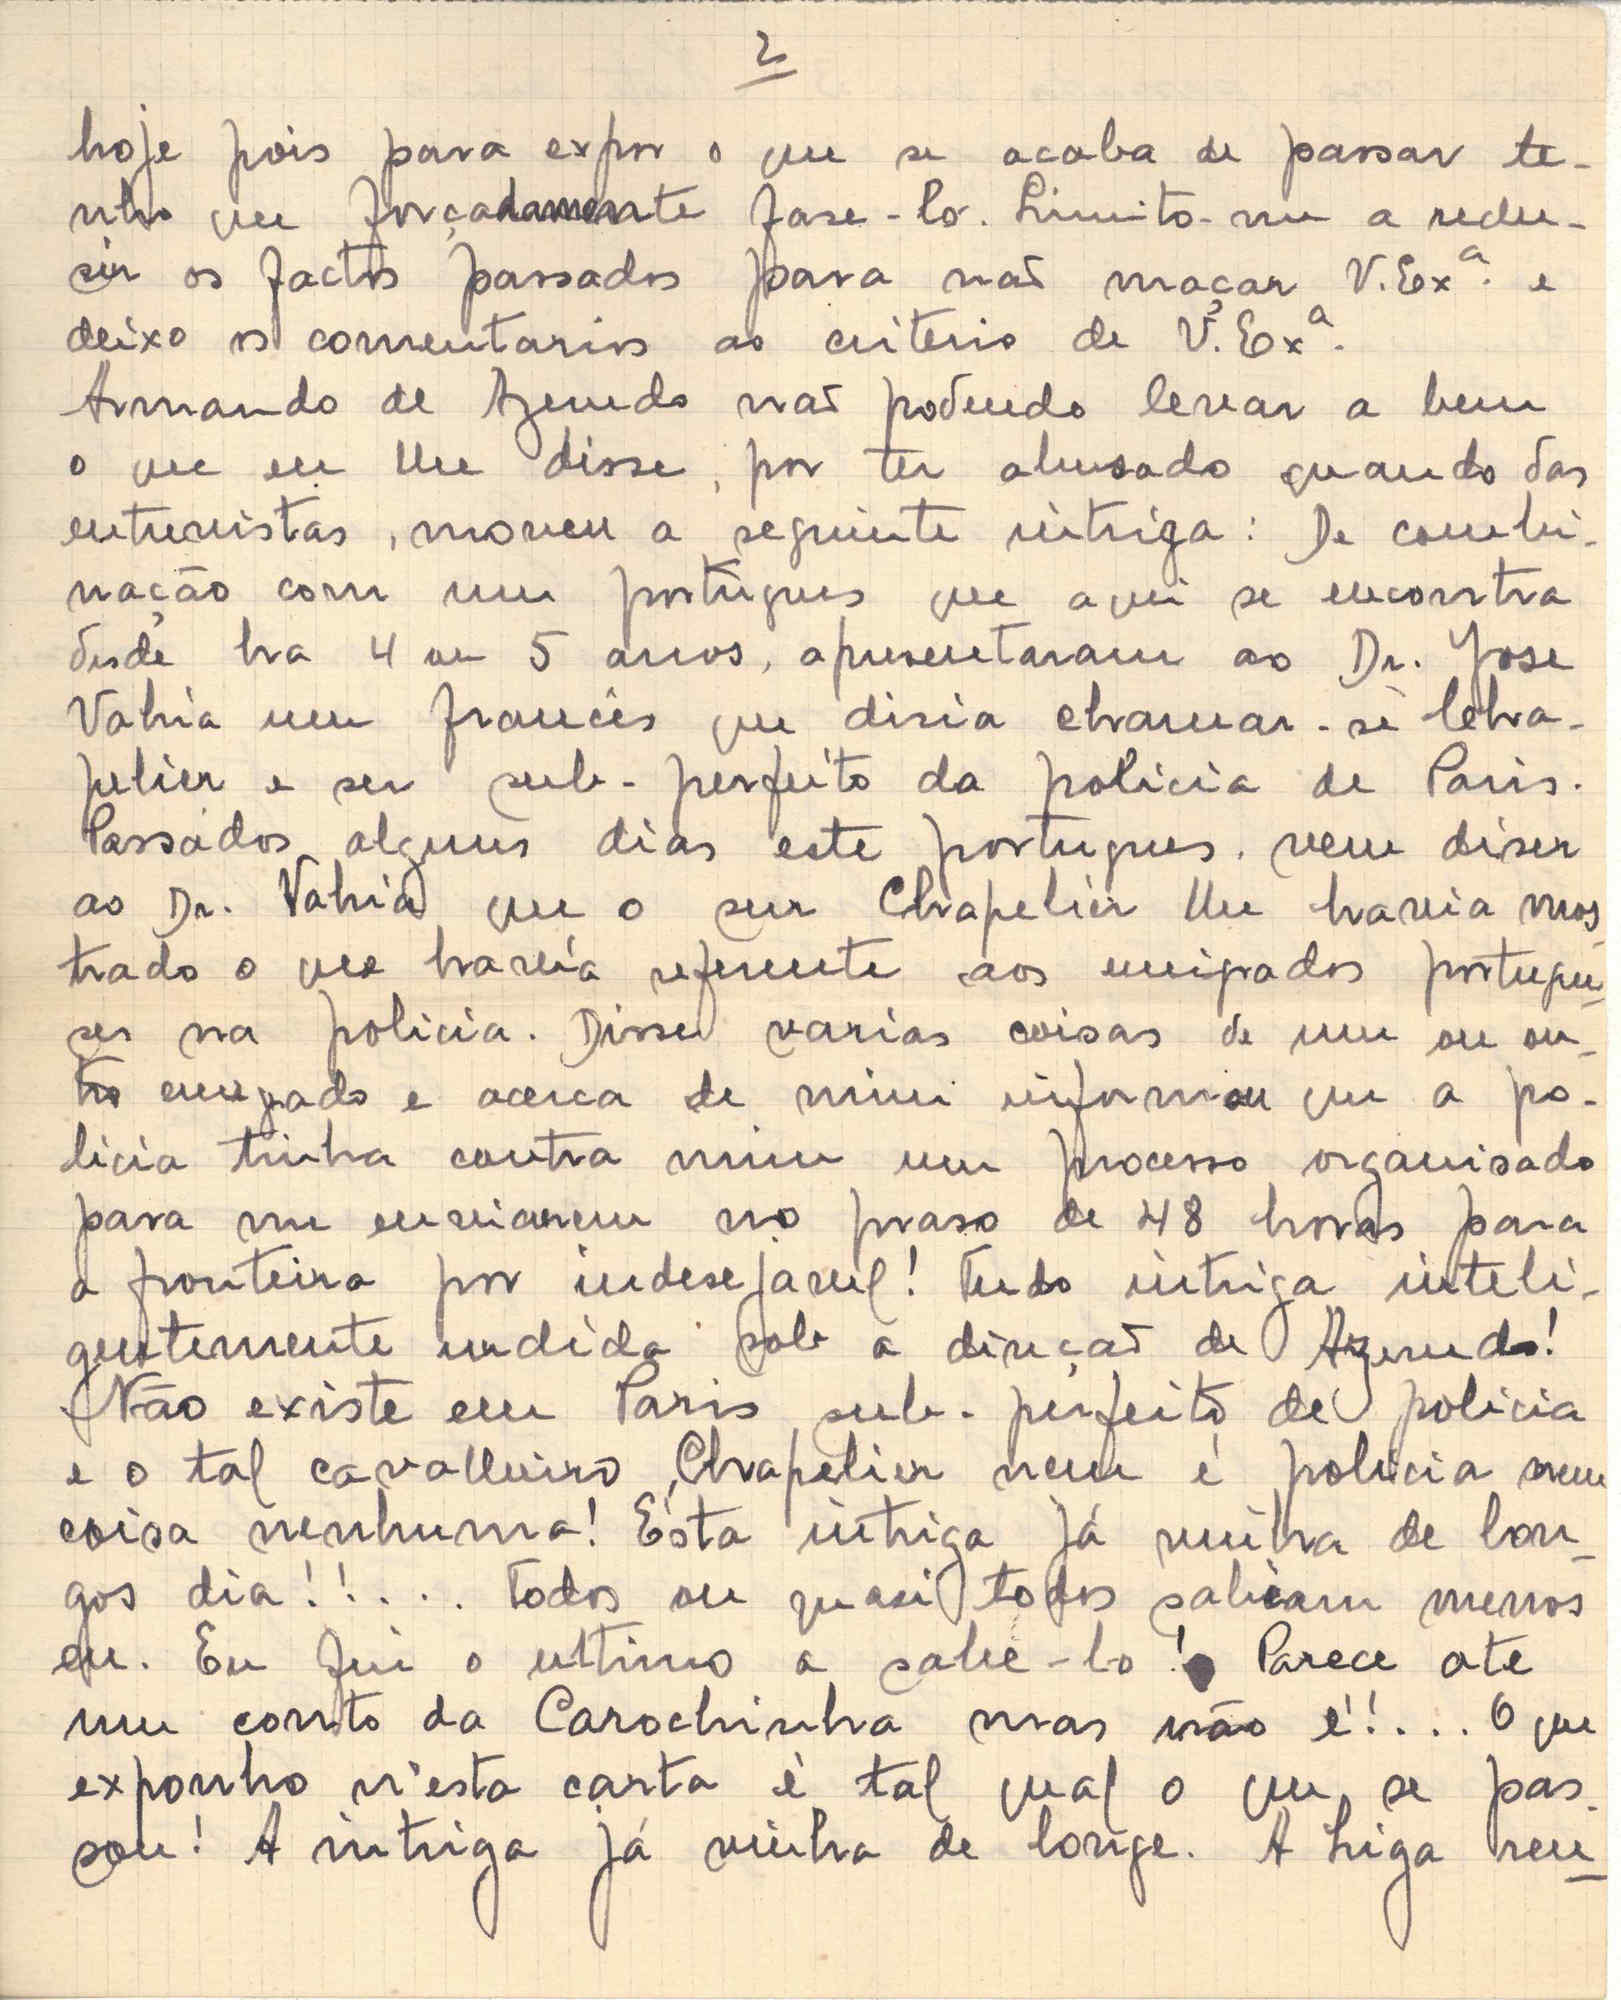 2
hoje pois para expor o que se acaba de passar te-
nho que forçadamente fase-lo. Limito-me a redu-
sir os factos passados para naõ maçar V. Exª. e
deixo os comentarios ao criterio de V. Exª.
Armando de Azevedo naõ podendo levar a bem
o que eu lhe disse, por ter abusado quando das
entrevistas, moveu a seguinte intriga: De combi-
nação com um portugues que aqui se encontra
desde ha 4 ou 5 anos, apresentaram ao Dr. Jose
Vahia um francês que disia chamar-se Lecha-
pelier e ser sub-perfeito da policia de Paris.
Passados alguns dias este portugues. vem diser
ao Dr. Vahia que o snr Chapelier lhe havia mos-
trado o que havia referente aos emigrados portugue-
ses na policia. Disse varias coisas de um ou ou-
tro emigrado e acerca de mim informou que a po-
licia tinha contra mim um processo organisado
para me enviarem no praso de 48 horas para
a fronteira por indesejavel! Tudo intriga inteli-
gentemente urdida sob a direçaõ de Azevedo!
Não existe em Paris sub-perfeito de policia
e o tal cavalheiro Chapelier nem é policia nem
coisa nenhuma! Esta intriga já vinha de lon-
gos dia!!.... Todos ou quasi todos sabicam menos
eu. Eu fui o ultimo a sabe-lo! Parece ate
um conto da Carochinha mas não é!.... O que
exponho n'esta carta é tal qual o que se pas-
sou! A intriga já vinha de longe. A Liga reu-